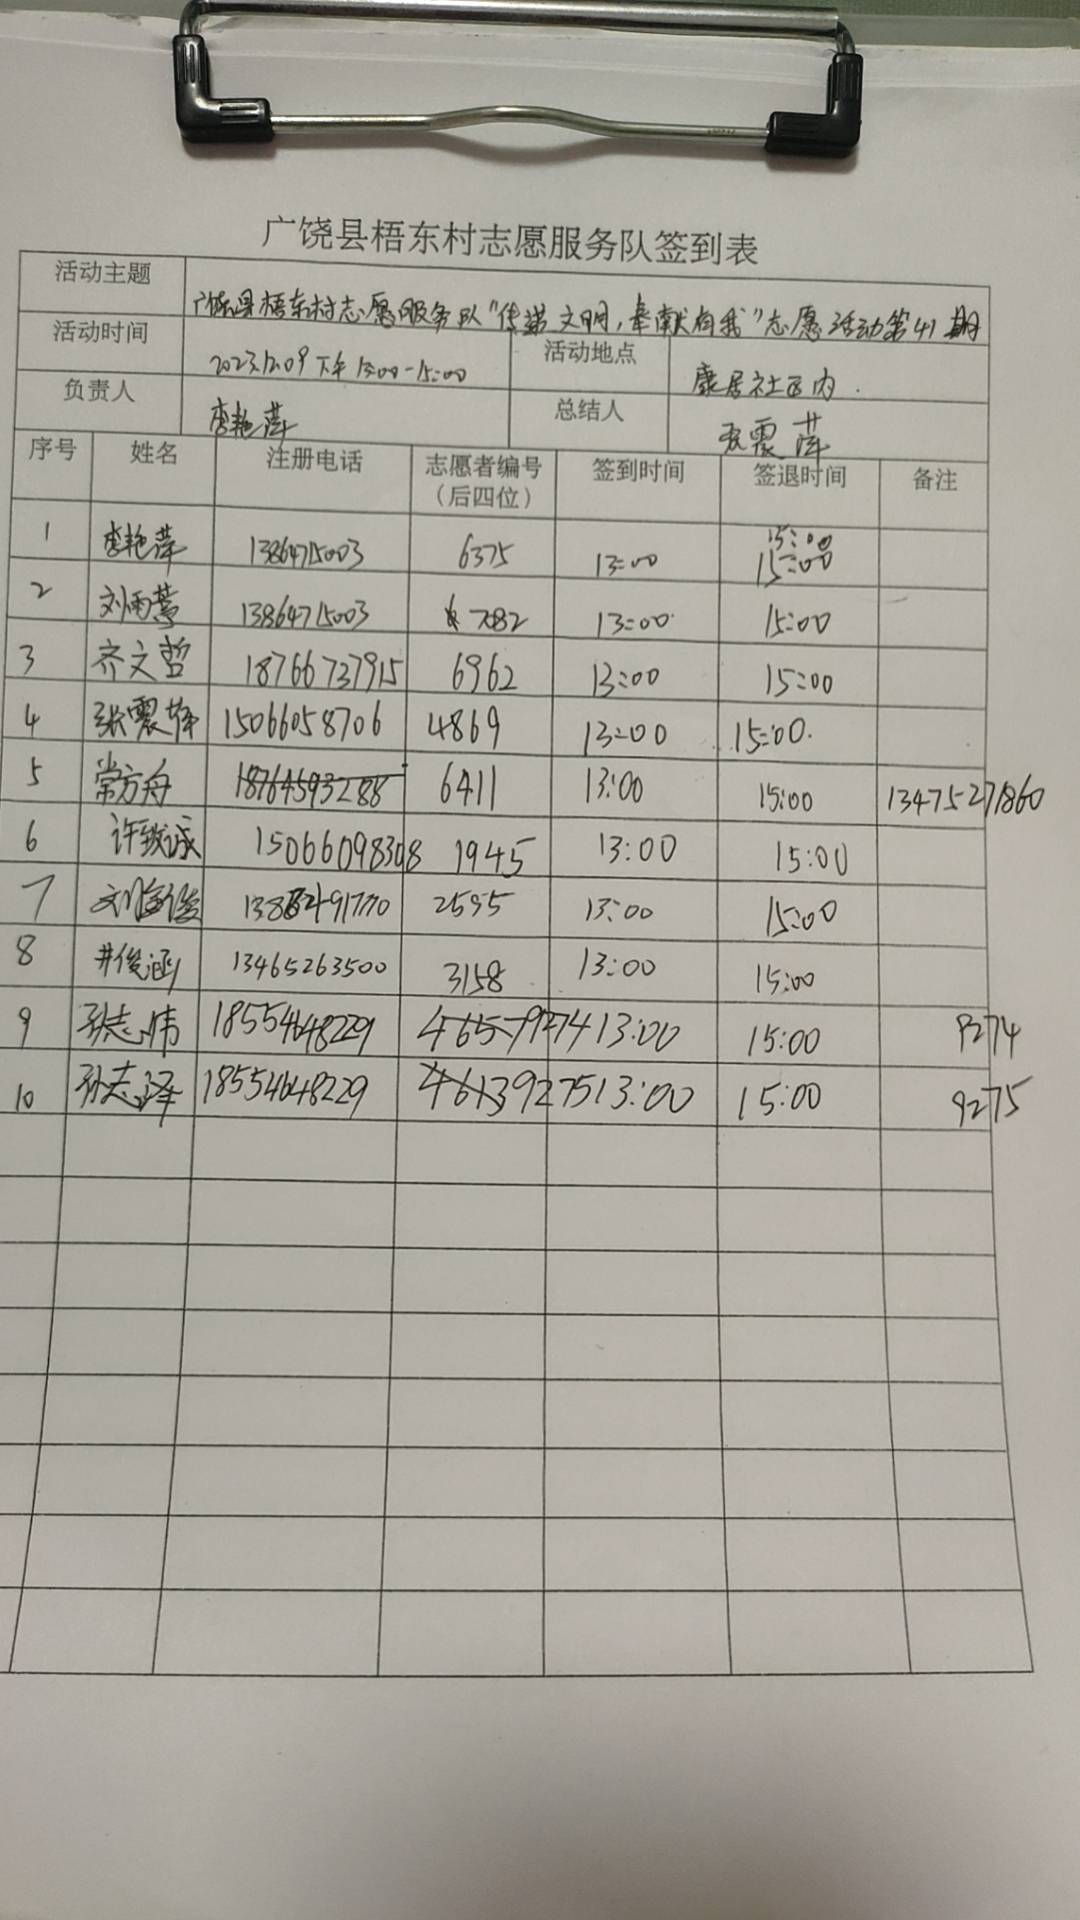 广饶县梧东村志愿服务队签到表
活动主题 广饶县梧东村志愿服务队“传递文明,奉献有我”志愿活动第41期
活动时间 2023.12.09 下午13:00-15:00 活动地点 康居社区内.
负责人 李艳萍 总结人 张震萍
序号 姓名 注册电话 志愿者编号(后四位) 签到时间 签退时间 备注
1 李艳萍 13864715003 6375 13:00 15:00 15:00
2 刘雨蒙 13864715003 7282 13:00 15:00
3 齐文哲 18766737915 6962 13:00 15:00
4 张震萍 15066058706 4869 13:00 15:00.
5 常方舟 18764593288 6411 13:00 15:00 13475271860
6 许致诚 15066098308 1945 13:00 15:00
7 2595 13:00 15:00
8 井俊涵 13465263500 3158 13:00 15:00
9 孙志伟 18554648229 46579274 13:00 15:00 9274
10 孙志泽 18554648229 46139275 13:00 15:00 9275